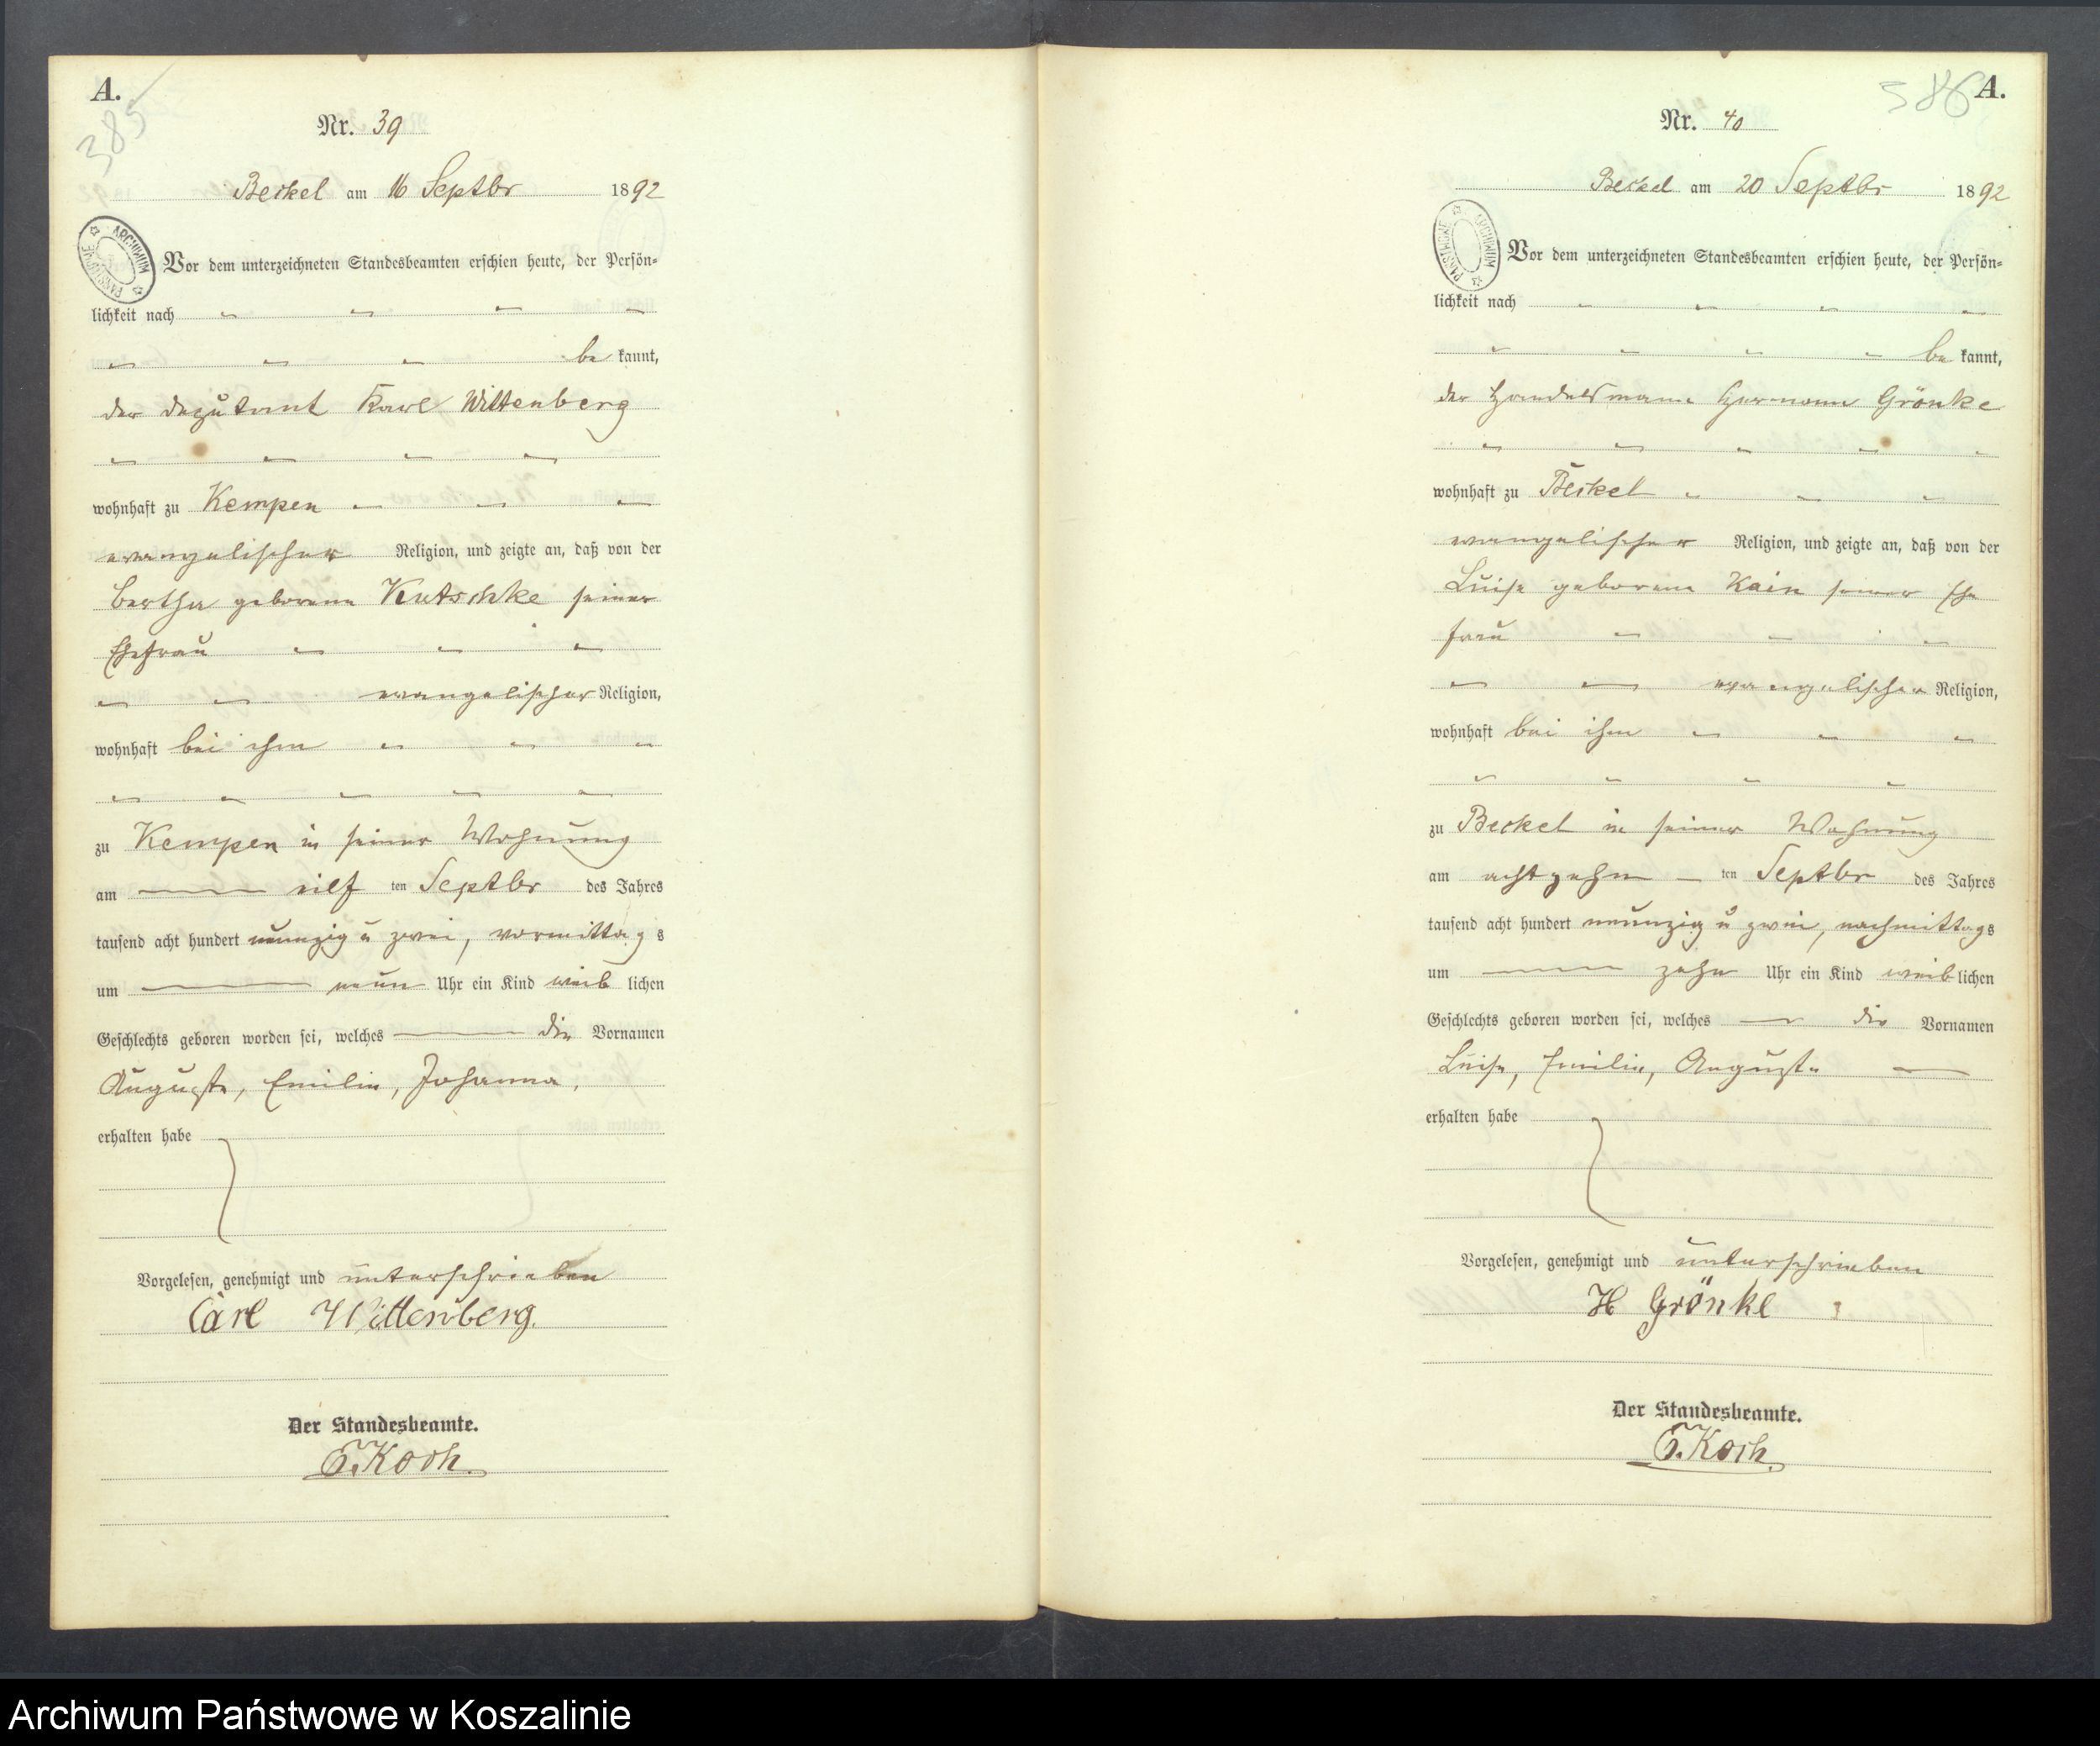 A.
385
Nr. 39
Beckel am 16 Septbr 1892
ARCHIWUM PAŃSTWOWE
Vor dem unterzeichneten Standesbeamten erschien heute, der Persön-
lichkeit nach
be kannt,
der Deputant Karl Wittenberg
wohnhaft zu Kempen
evangelischer Religion, und zeigte an, daß von der
Bertha geborene Kutschke seiner
Ehefrau
evangelischer Religion,
wohnhaft bei ihm
zu Kempen in seiner Wohnung
am eilf ten Septbr des Jahres
tausend acht hundert neunzig u zwei, vormittag s
um neun Uhr ein Kind weib lichen
Geschlechts geboren worden sei, welches die Vornamen
Auguste, Emilie, Johanna.
erhalten habe
Vorgelesen, genehmigt und unterschrieben
Carl Wittenberg.
Der Standesbeamte.
Koch.
386
A.
Nr. 40
Beckel am 20 Septbr 1892
ARCHIWUM PAŃSTWOWE
Vor dem unterzeichneten Standesbeamten erschien heute, der Persön-
lichkeit nach
be kannt,
der Handelsmann Hermann Grönke
wohnhaft zu Beckel
evangelischer Religion, und zeigte an, daß von der
Luise geborene Kain seiner Ehe
frau
evangelischer Religion,
wohnhaft bei ihm
zu Beckel in seiner Wohnung
am achtzehn ten Septbr des Jahres
tausend acht hundert neunzig u zwei, nachmittags
um zehn Uhr ein Kind weib lichen
Geschlechts geboren worden sei, welches die Vornamen
Luise, Emilie, Auguste
erhalten habe
Vorgelesen, genehmigt und unterschrieben
H Grönke
Der Standesbeamte.
Koch.
Archiwum Państwowe w Koszalinie